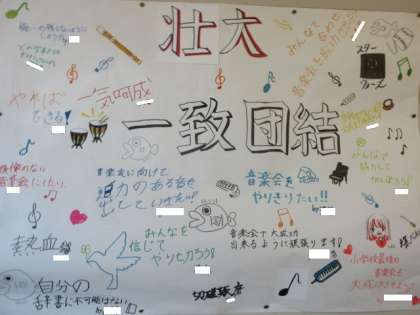 壮大
みんなで
スター
一気呵成
やれば
できる!
by
一致団結
みんなで
協力して
がんばろう!
音楽会に向けて
迫力のある音を
出していきたい!!
音楽会を
やりきりたい!!
by
音楽会にしたい。
熱血
みんなを
信じて
やり切ろう!
音楽会で大成功
出来るように頑張ります!
小学校最後の
音楽会を
自分の
辞書に不可能はない
by
切磋琢磨